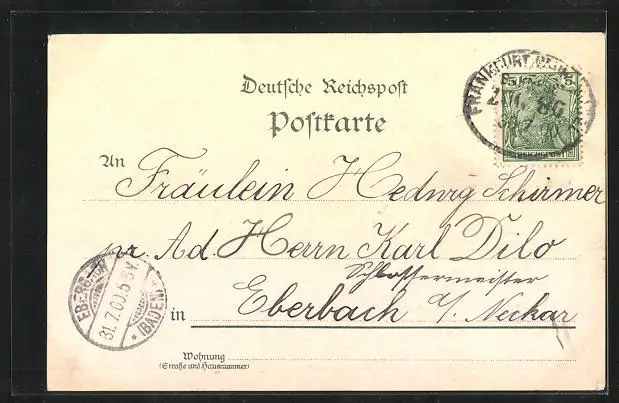 Deutsche Reichspost
Postkarte
FRANKFURT
ZUG 86
5 5
REICHSPOST
An
Fräulein Hedwig Schirmer
pr. Ad. Herrn Karl Dilo
Schlossermeister
in Eberbach a/ Neckar
EBERBACH
31.7.00.5-6N.
* (BADEN)
Wohnung
(Straße und Hausnummer)